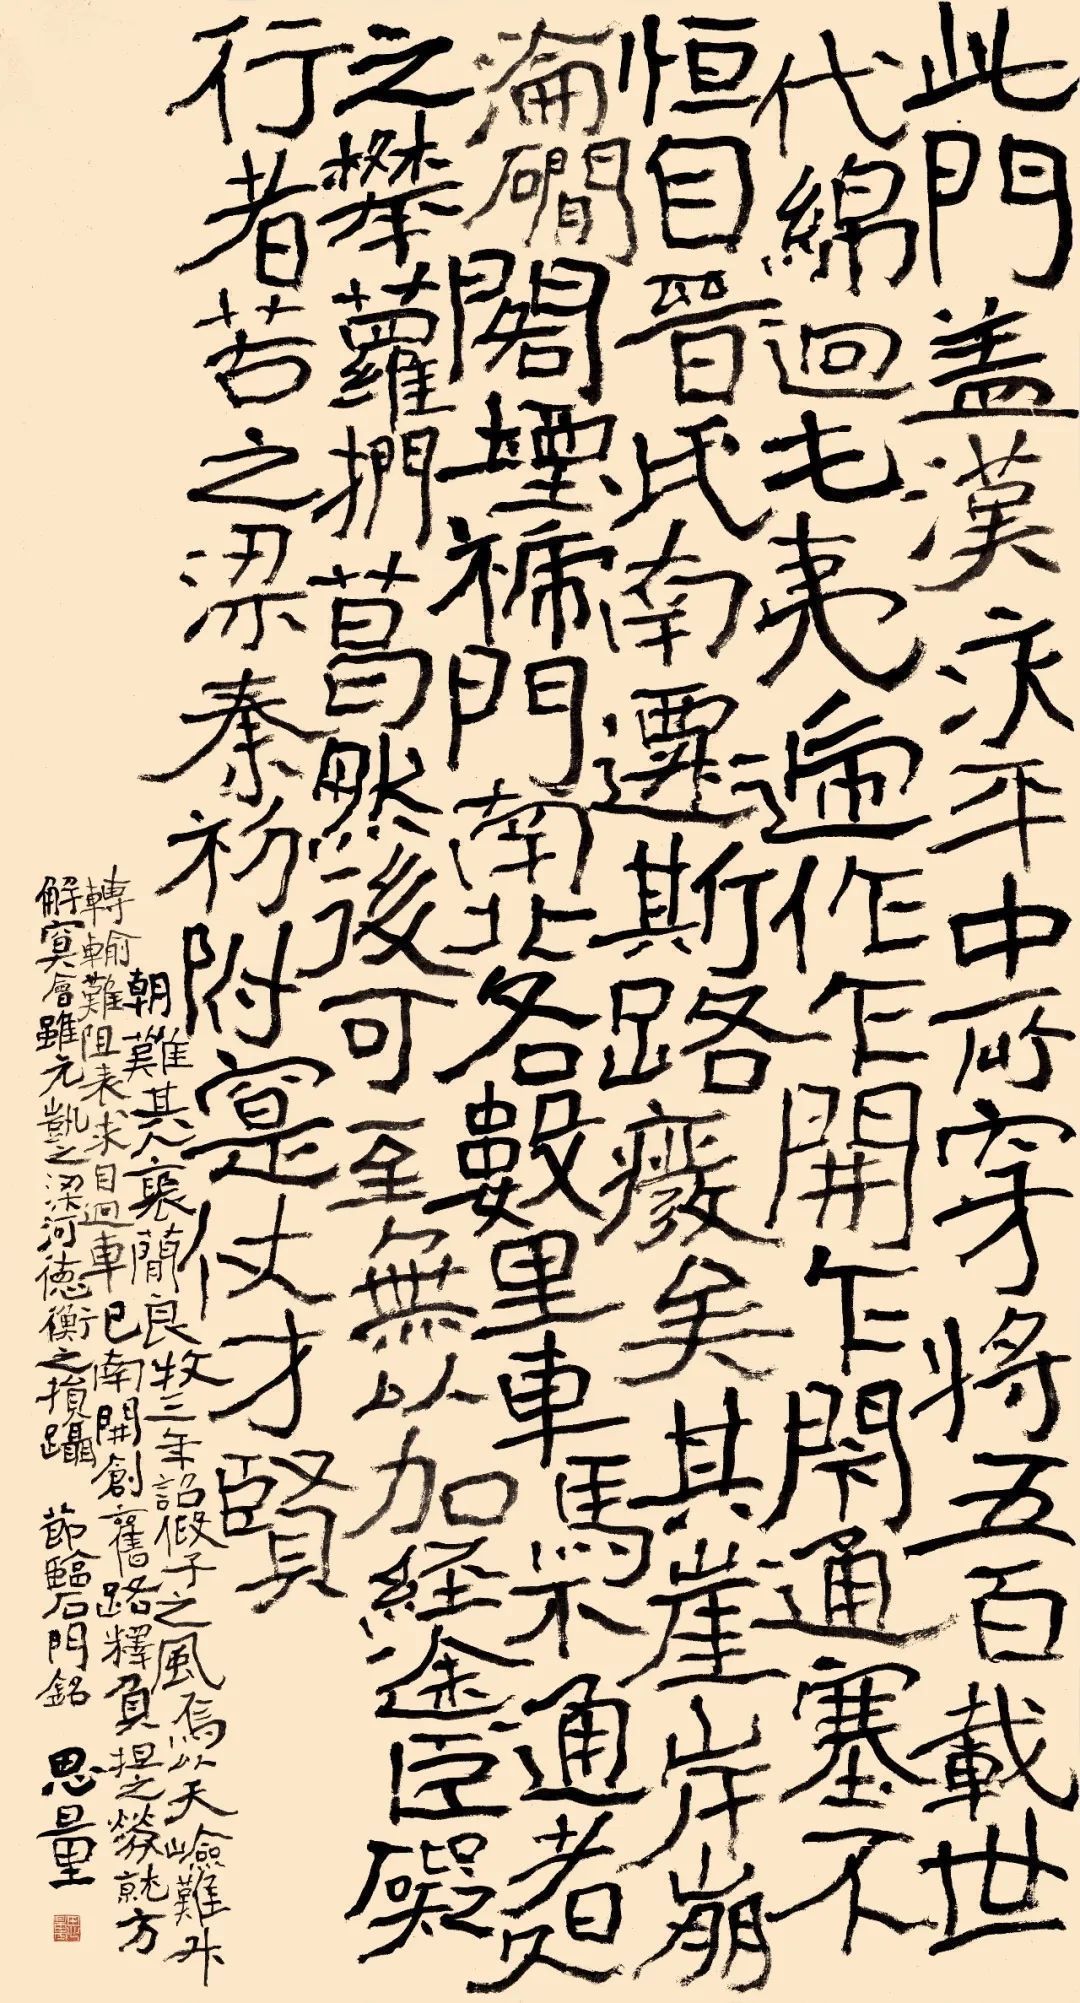 此門盖漢永平中所穿將五百載世
代綿迴屯夷遞作乍開乍閉通塞不
恒自晉氏南遷斯路廢矣其崖岸崩
淪磵閣堙褫門南北各數里車馬不通者久
之攀蘿捫葛然後可至無以加經途巨礙
行者苦之梁秦初附寔仗才賢
朝難其人褒簡良牧三年詔假子之風焉以天嶮難升
轉輸難阻表求自迴車已南開創舊路釋負擔之勞就方
解冥會雖元凱之梁河德衡之損躡 節臨石門銘 思量